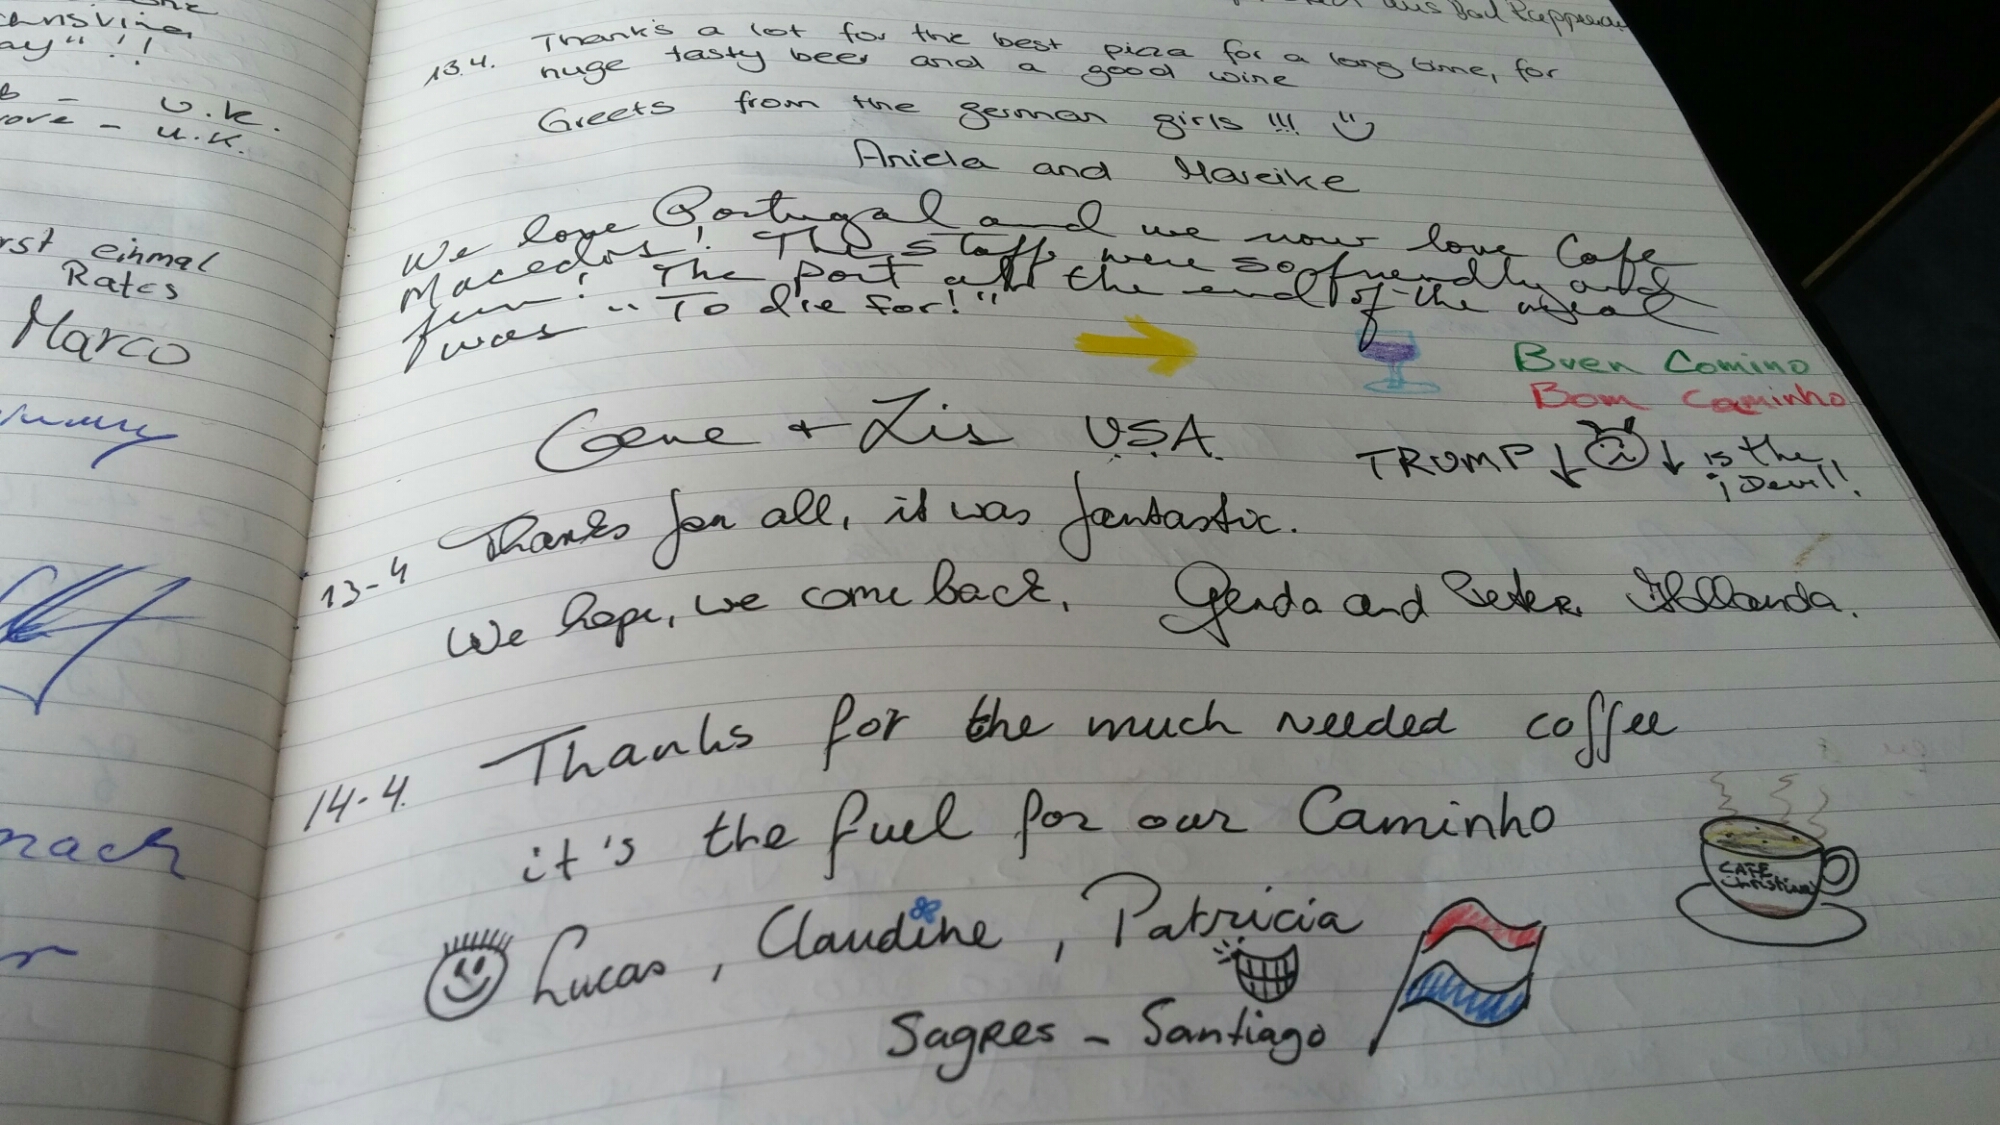 ay" !!
u.k.
u.k.
einmal
Rates
Marco
aus Bad Rappenau
13.4. Thanks a lot for the best pizza for a long time, for
huge tasty beer and a good wine
Greets from the german girls !!!
Aniela and Mareike
We love Portugal and we now love Cafe
Macedos! The staff were so friendly and
fun! The port at the end of the meal
was "To die for!"
Buen Comino
Bom Caminho
Gene + Lis U.S.A.
TROMP is the
¡Devil!
13-4 Thanks for all, it was fantastic.
We hope, we come back. Gerda and Peter Hollanda.
14-4. Thanks for the much needed coffee
it's the fuel for our Caminho
CAFE
Christina
Lucas, Claudine, Patricia
Sagres - Santiago